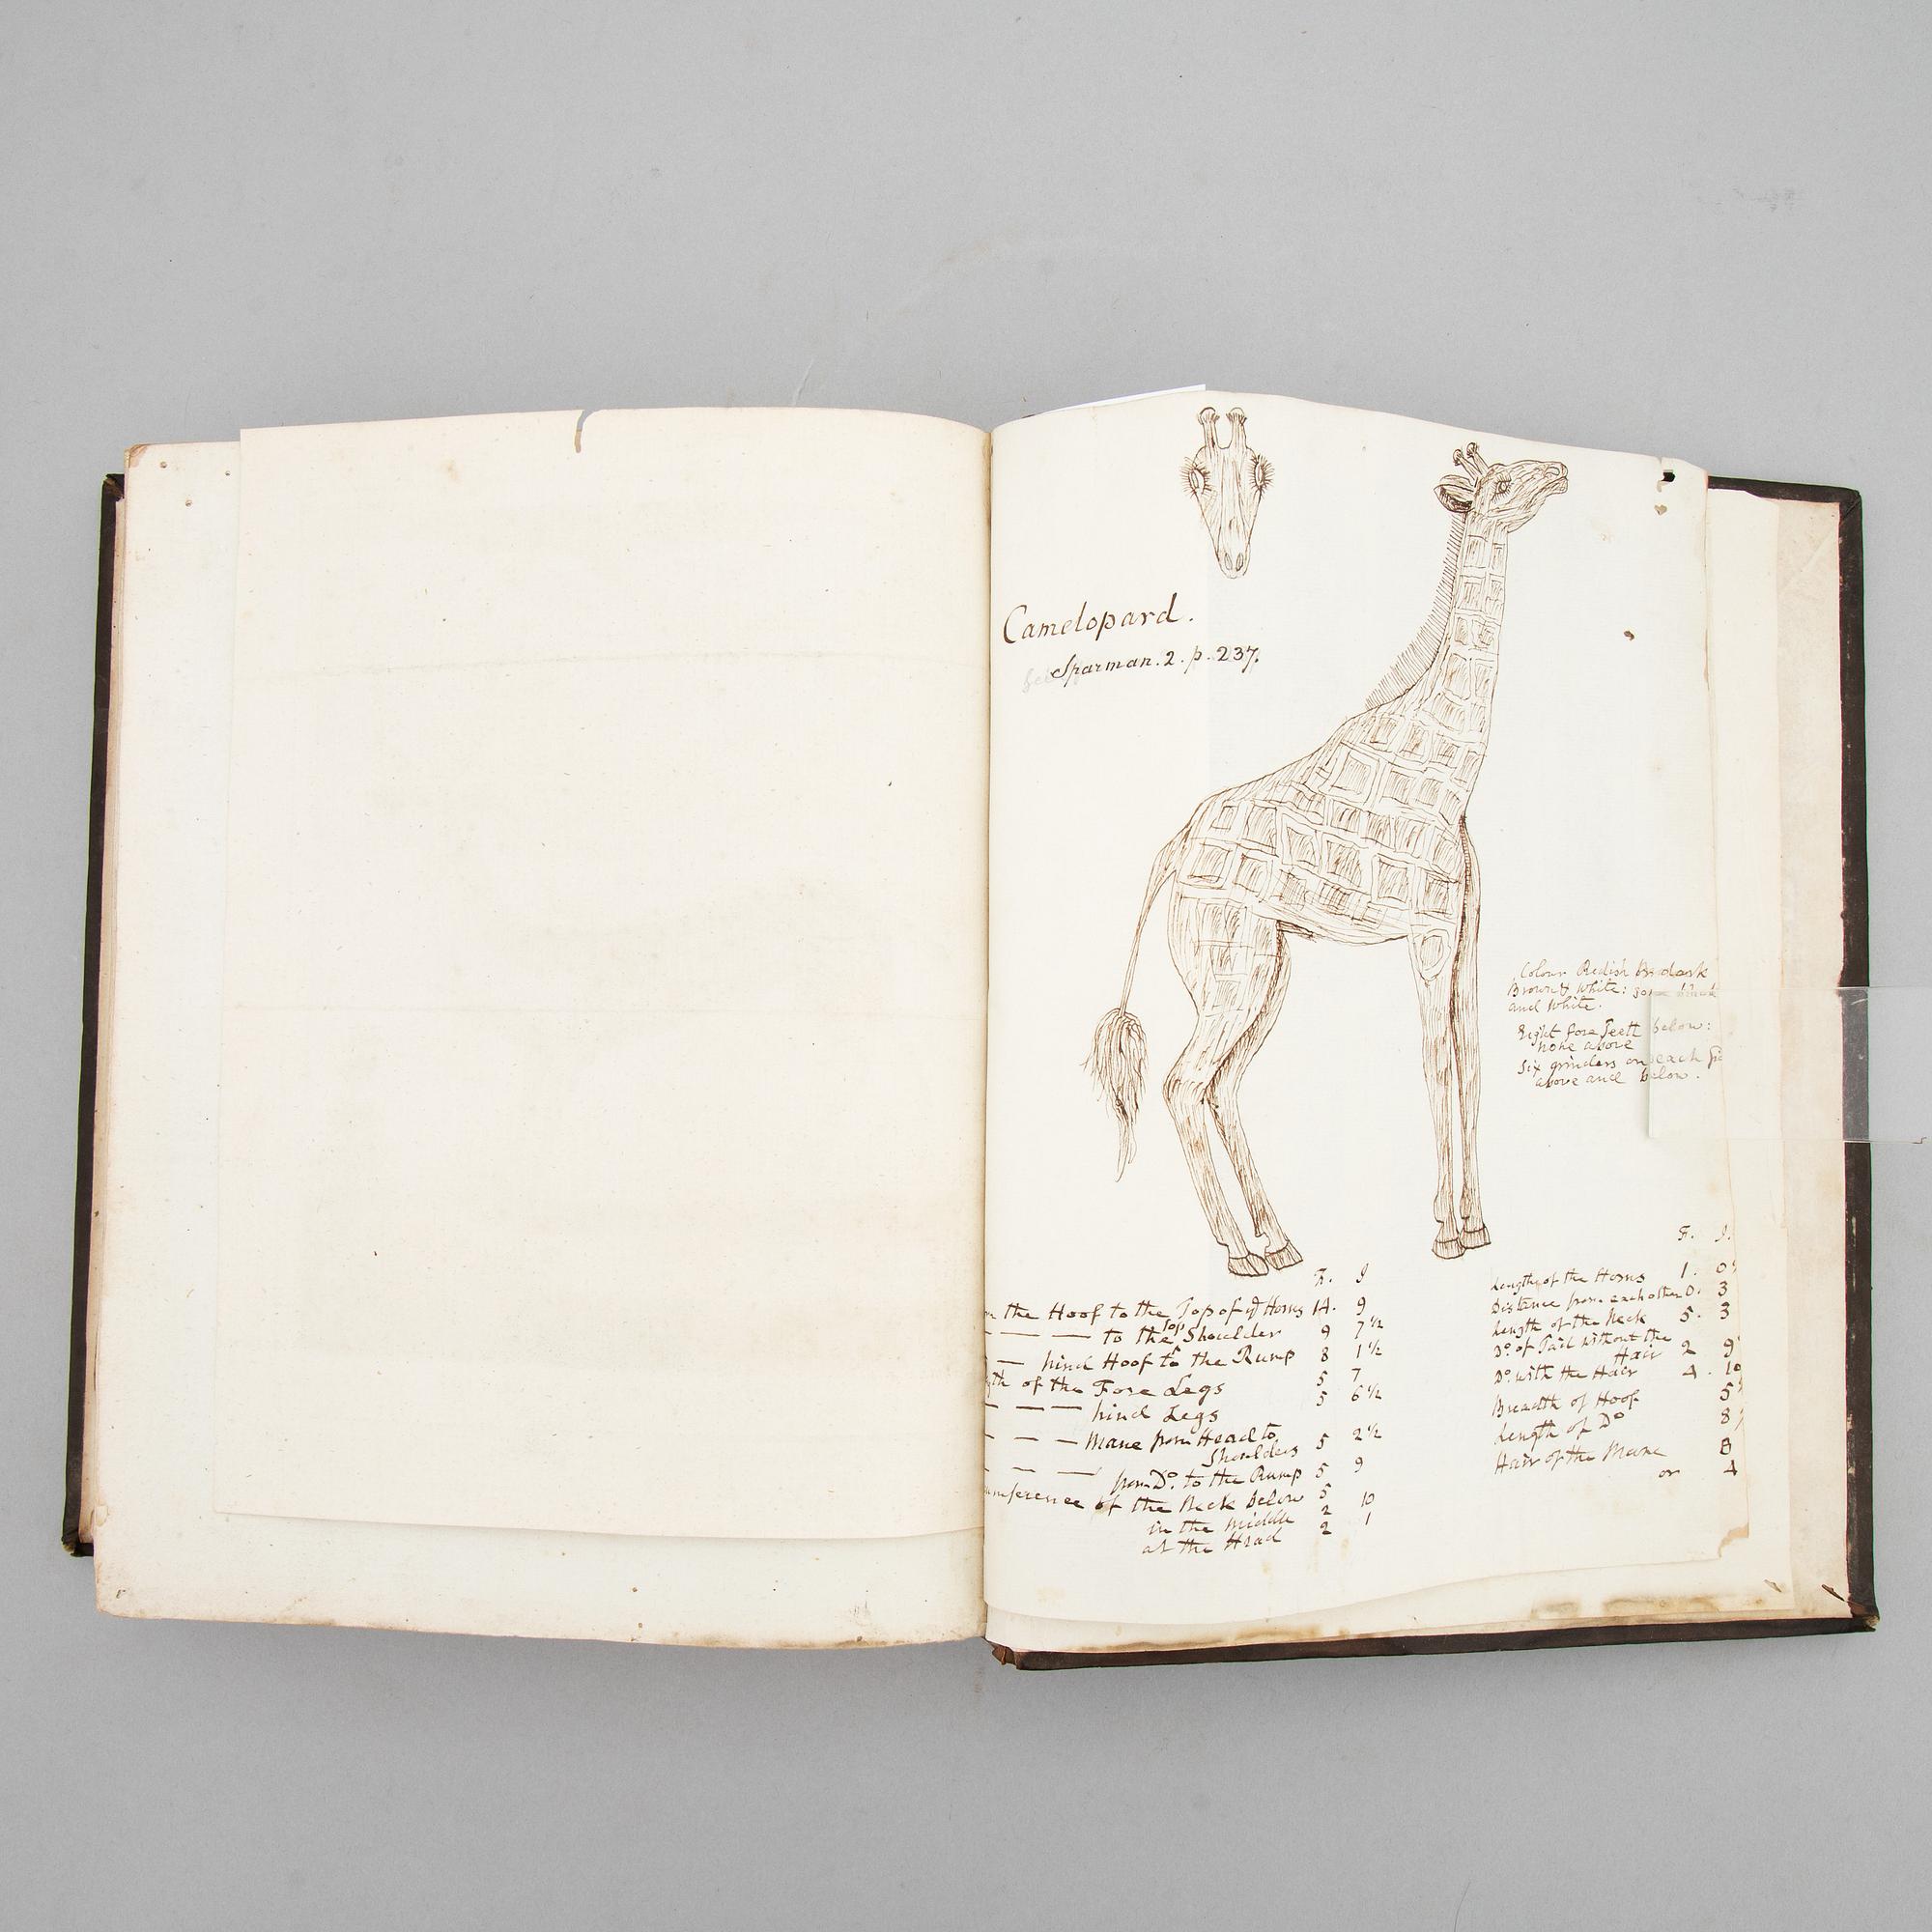 Camelopard.
Sparman. 2. p. 237.
Colour Redish dark
Brown & White: some black
and White.
Eight fore Teeth below:
none above
Six grinders on each
above and below.
F. I
the Hoof to the Top of ye Horns 14. 9
— — — to the top Shoulder 9 7 1/2
— hind Hoof to the Rump 8 1 1/2
of the Fore Legs 5 7
— — — hind Legs 5 6 1/2
— — — Mane from Head to
Shoulders 5 2 1/2
— — — from Do. to the Rump 5 9
of the Neck below 5
in the middle 2 10
at the Head 2 1
F. I.
Length of the Horns 1. 0
Distance from each other 0. 3
Length of the Neck 5. 3
Do. of Tail without the
Hair 2 9
Do. with the Hair 4. 10
Breadth of Hoof 5
Length of Do 8
Hair of the Mane 3
or 4